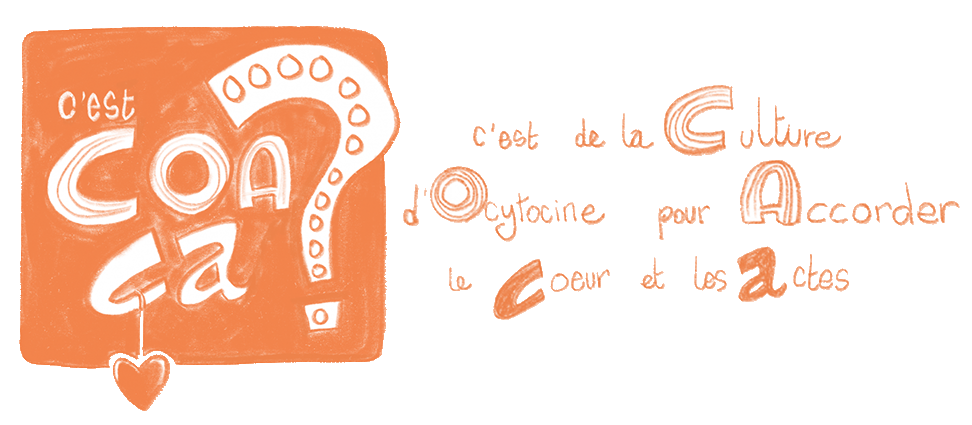 c'est
COA
ça ?
c'est de la Culture
d'Ocytocine pour Accorder
le coeur et les actes